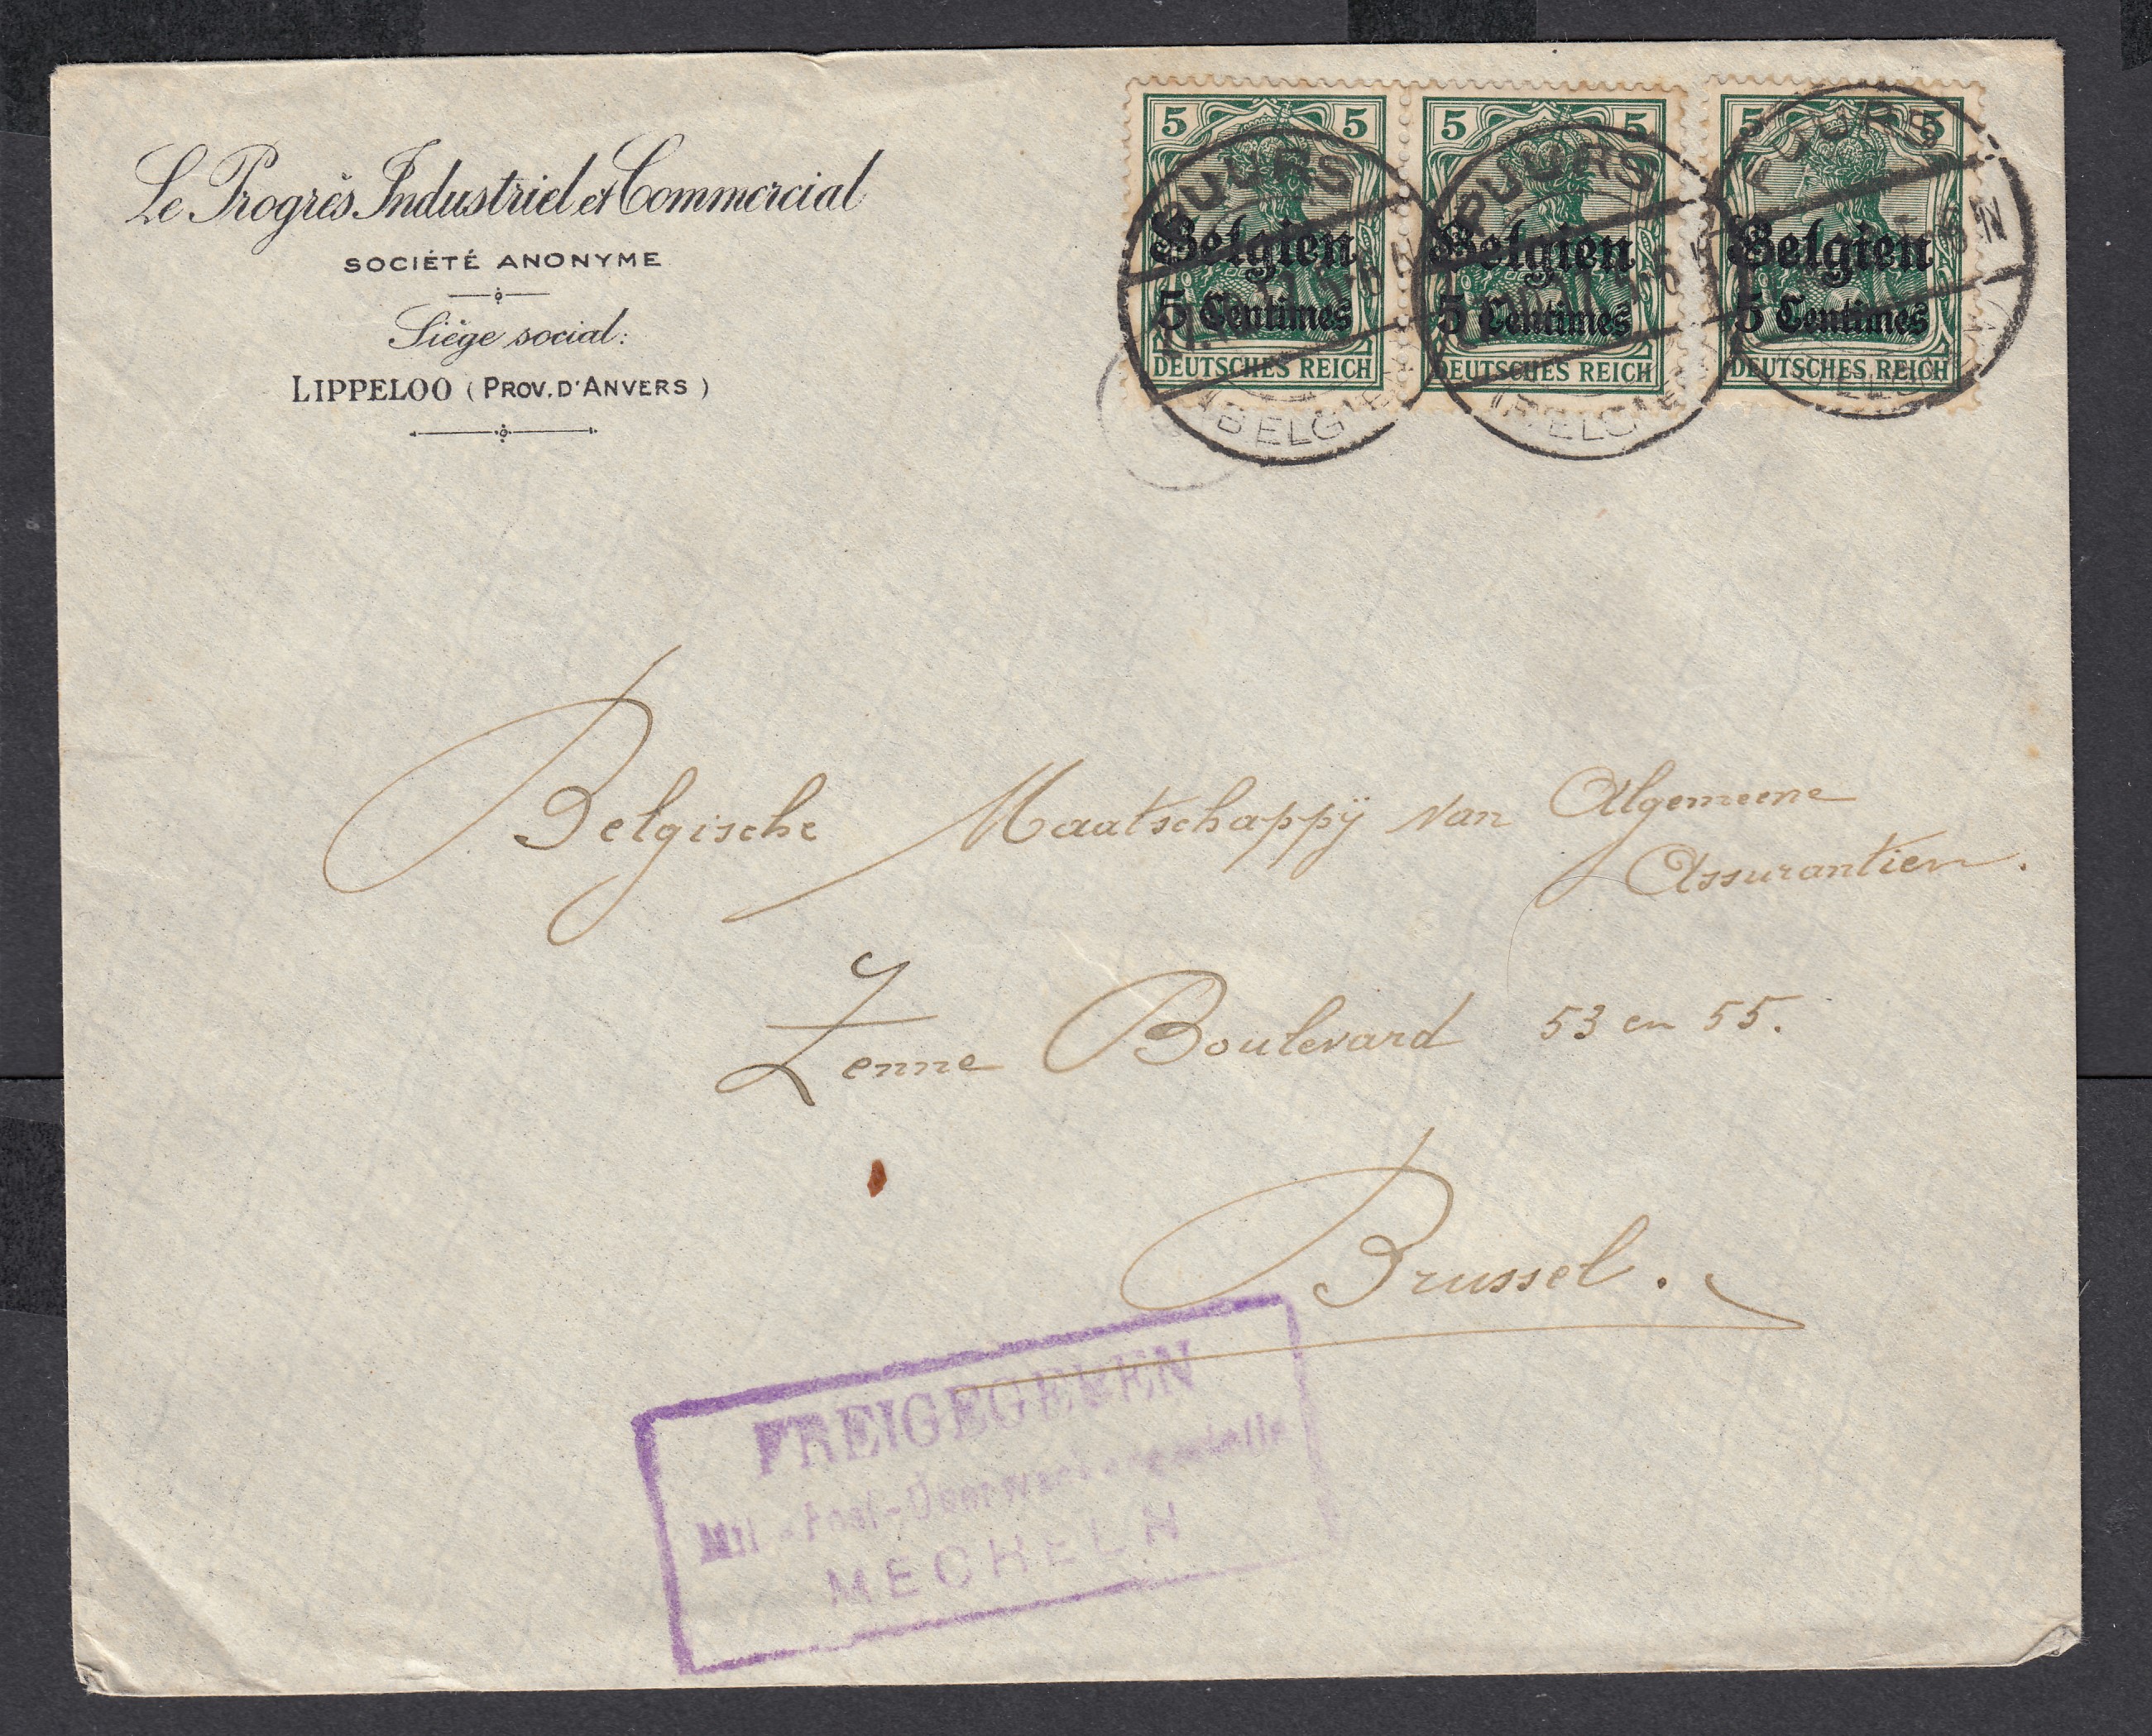 Le Progrès Industriel et Commercial
SOCIÉTÉ ANONYME
Siège social:
LIPPELOO (PROV. D'ANVERS)
5 5
Belgien
5 Centimes
DEUTSCHES REICH
5 5
Belgien
5 Centimes
DEUTSCHES REICH
5 5
Belgien
5 Centimes
DEUTSCHES REICH
PUURS
(BELGIEN
PUURS
(BELGIEN
PUURS
Belgische Maatschappij van Algemeene
Assurantien.
Zenne Boulevard 53 en 55.
Brussel.
FREIGEGEBEN
Mil.-Post-Überwachungsstelle
MECHELN